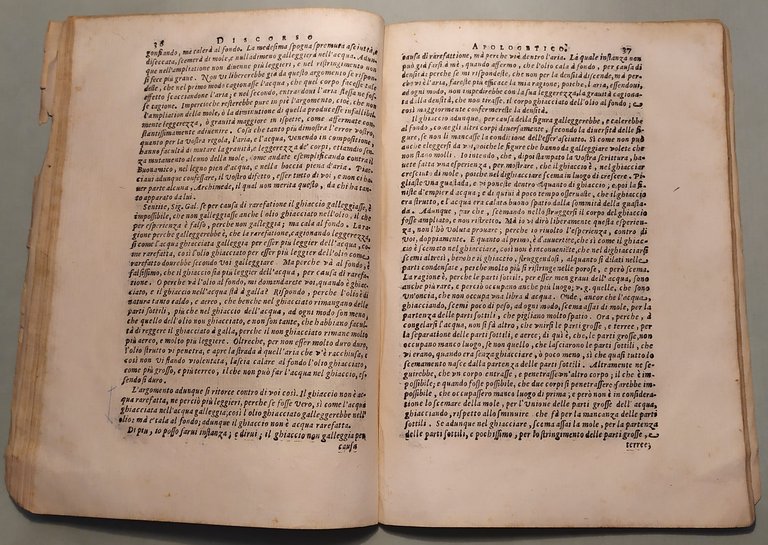 36 DISCORSO
gonfiando, ma calerà al fondo. La medesima spogna premuta asciutta,
diseccata, scemerà di mole, e nulladimeno galleggierà nell'acqua. Adun
que nell'ampliatione non diuenne più leggieri, e nel ristringimento non
si fece più graue. Non vi libererebbe già da questo argomento se rispon-
deste, che nel primo modo cagionasse l'acqua, che quel corpo facesse tale
effetto se accettandone l'aria; e nel secondo, entrandoui l'aria stessa ne fos-
se cagione. Imperciochè resterebbe pure in piè l'argomento, cioè, che non
l'ampliation della mole, ò la diminutione di quella producesse infallibil-
mente leggerezza, ò grauità maggiore in ispetie, come affermate con-
stantissimamente adiuenire. Cosa che tanto più dimostra l'error vostro,
quanto per la vostra regola, l'aria, e l'acqua, venendo in compositione,
hanno facultà di mutare la grauità, e leggerezza de' corpi, etiandio sen-
za mutamento alcuno della mole, come andate esemplificando contra il
Buonamico, nel legno pien d'acqua, e nella boccia piena d'aria. Piac-
ciaui adunque confessare, il vostro difetto, esser tutto di voi, e non ci ha-
uer parte alcuna, Archimede, il qual non merita questo, da chi ha tan-
to apparato da lui.
Sentite, Sig. Gal. se per causa di rarefatione il ghiaccio galleggiasse, è
impossibile, che non galleggiasse anche l'olio ghiacciato nell'olio, il che
per esperienza è falso, perche non galleggia; ma cala al fondo. La ra-
gione perche galleggerebbe è, che la rarefatione, cagionando leggerezza,
si come l'acqua ghiacciata galleggia per esser più leggier dell'acqua, co-
me rarefatta, così l'olio ghiacciato per esser più leggier dell'olio come
rarefatto dourebbe secondo voi galleggiare. Ma perche và al fondo, è
falsissimo, che il ghiaccio sia più leggier dell'acqua, per causa di rarefat-
tione. O perche và l'olio al fondo, mi domandarete voi, quando è ghiac-
ciato, e il ghiaccio nell'acqua stà à galla? Rispondo, perche l'olio è di
natura tanto raldo, e aereo, che benche nel ghiacciato rimangano delle
parti sottili, più che nel ghiaccio dell'acqua, ad ogni modo son meno,
che quelle dell'olio non ghiacciato, e non son tante, che habbiano facul-
tà di reggere il ghiacciato à galla, perche il non ghiacciato rimane molto
più aereo, e molto più leggieri. Oltreche, per non esser molto duro duro,
l'olio strutto vi penetra, e apre la strada à quell'aria che v'è racchiusa, e
così non vi stando violentata, lascia calare al fondo l'olio ghiacciato,
come più grosso, e più terreo; il che non può far l'acqua nel ghiaccio, es-
sendo sì duro.
L'argomento adunque si ritorce contro di voi così. Il ghiaccio non è ac-
qua rarefatta, ne perciò più leggieri, perche se fosse vero, sì come l'acqua
ghiacciata nell'acqua galleggia, così l'olio ghiacciato galleggerebbe nell'
olio; mà e' cala al fondo; adunque il ghiaccio non è acqua rarefatta.
Di più, io posso farui instanza; e dirui, il ghiaccio non galleggia per
causa
APOLOGETICO. 37
causa di rarefatione, mà perche v'è dentro l'aria. La quale instanza non
può già farsi à me, quando affermo, che l'olio cala al fondo, per causa di
densità: perche se mi rispondeste, che non per la densità discende, mà per-
che v'è aria, fareste più efficace la mia ragione, poiche, l'aria, essendoui,
ad ogni modo, non impedirebbe con la sua leggerezza, la grauità cagiona-
ta dalla densità, che non traesse, il corpo ghiacciato dell'olio al fondo:
così maggiormente confermereste la densità.
Il ghiaccio adunque, per causa della figura galleggerebbe, e calerebbe
al fondo, e così ogni altro corpo diuersamente, secondo la diuersità delle fi-
gure, se non li mancasse la conditione dell'esser asciutto. Ma di ciò non oc-
corre che si disputi da voi, poiche le figure che hanno da galleggiare volete che
non stieno molli. Io intendo, che, di poi stampata la vostra scrittura, ha-
uete fatta vna esperienza, per mostrare, che il ghiaccio è, nel ghiacciare,
cresciuto di mole, perche nel dighiacciare scema in luogo di crescere. Pi-
gliaste vna guastada, e vi poneste dentro alquanto di ghiaccio, e poi la fi-
niste d'empier d'acqua; e di quiui à poco tempo osseruaste, che il ghiaccio
era strutto, e l'acqua era calata buono spatio dalla sommità della guasta-
da. Adunque, par che, scemando nello struggersi il corpo del ghiaccio
fosse ampliato, e non ristretto. Ma io vi dirò liberamente questa esperien-
za, non l'hò voluta prouare; perche io riuolto l'esperienza, contro di
voi, doppiamente. E quanto al primo, è d'auuertire, che sì come il ghiac-
cio è scemato nel ghiacciare, così non è inconueniente, che nel dighiacciarsi
scemi altresì, benche il ghiaccio, struggendosi, alquanto si dilati nelle
parti condensate, perche molto più si ristringe nelle porose, però scema.
La ragione è, perche le parti sottili, per esser men graui dell'acqua, sono
anche più rare, e perciò occupano anche più luogo, v. g. quelle, che sono
vn'oncia, che non occupa vna libra d'acqua. Onde, ancor che l'acqua,
ghiacciando, scemi poco di peso, ad ogni modo, scema assai di mole, per la
partenza delle parti sottili, che pigliano molto spatio. Ora, perche, à
congelarsi l'acqua, non si fà altro, che vnirsi le parti grosse, e terree; per
la separatione delle parti sottili, e aeree; di quì è, che, le parti grosse, non
occupano manco luogo, se non quello, che lasciarono le parti sottili, che
vi erano, quando era senza ghiacciare, ò poco meno, sì che quasi tutto lo
scemamento nasce dalla partenza delle parti sottili. Altramente ne se-
guirebbe, che vn corpo entrasse, e penetrasse vn'altro corpo; il che è im-
possibile; e quando fosse possibile, che due corpi si penetrassero sarebbe im-
possibile, che occupassero manco luogo di prima; e però non è in consi-
deratione lo scemare della mole, per l'vnione delle parti grosse dell'acqua,
ghiacciando, rispetto allo sminuire che fà per la mancanza delle parti
sottili. Se adunque nel ghiacciare, scema assai la mole, per la partenza
delle parti sottili, e pochissimo, per lo stringimento delle parti grosse, e
terree;